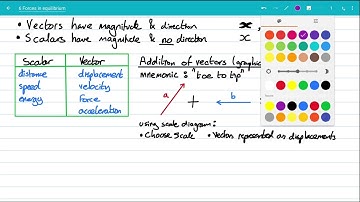 6 Forces in equilibrium
• Vectors have magnitude & direction x
• Scalars have magnitude & no direction x
Scalar Vector
distance displacement
speed velocity
energy force
acceleration
Addition of vectors (graphic
mnemonic: "toe to tip"
a + b
using scale diagram:
• Choose Scale • Vectors represented as displacements